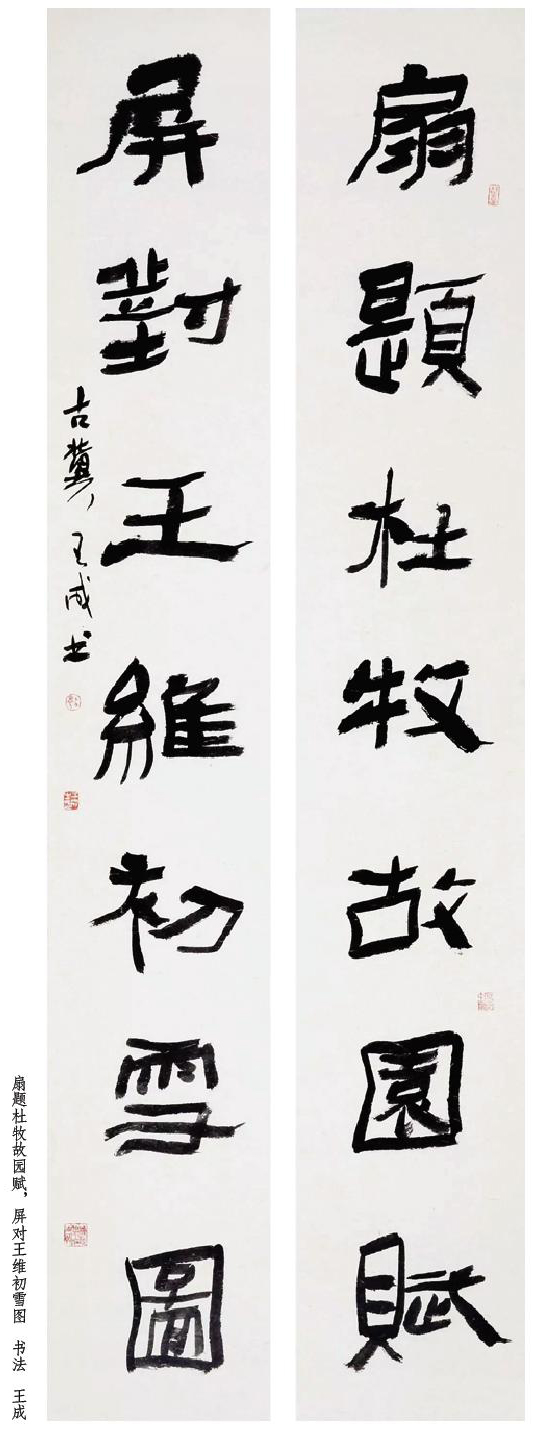 扇題杜牧故園賦
屏對王維初雪圖
古冀王成书
扇题杜牧故园赋，屏对王维初雪图 书法 王成